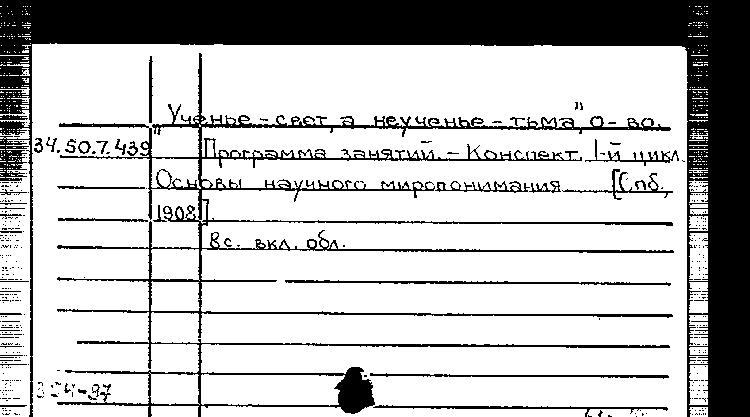 "Ученье – свет, а неученье – тьма", о-во.
34.50.7.439 Программа занятий. – Конспект. I-й цикл
Основы научного миропонимания [Спб,
1908].
8с. вкл. обл.